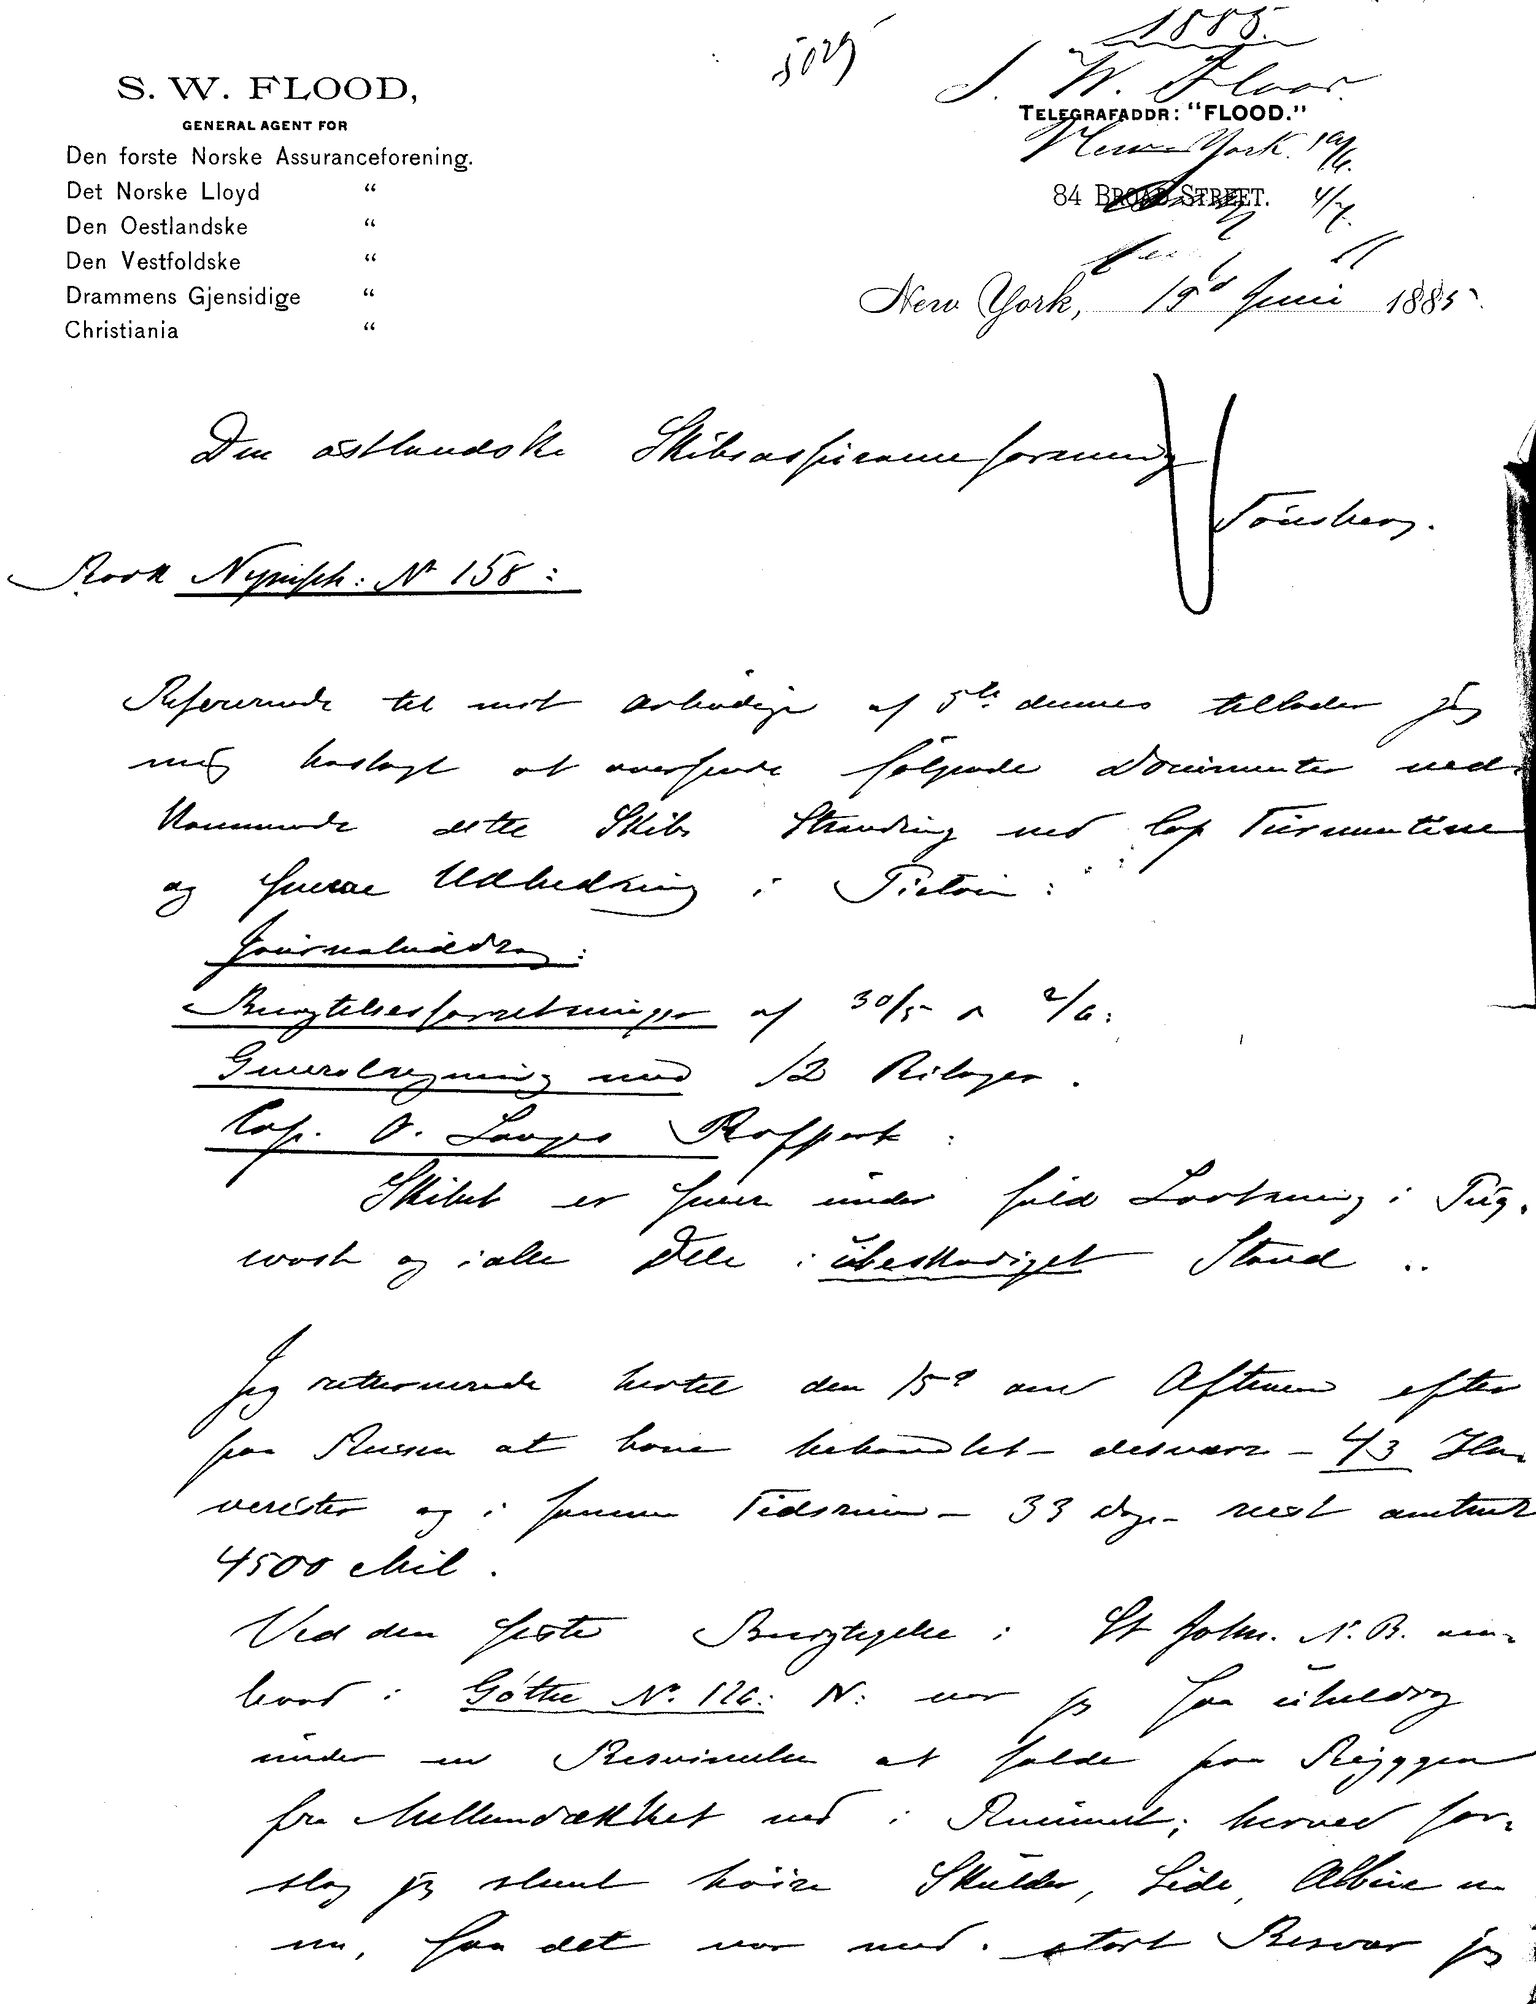 1885.
S. W. Flood.
S. W. FLOOD,
GENERAL AGENT FOR
Den forste Norske Assuranceforening.
Det Norske Lloyd "
Den Oestlandske "
Den Vestfoldske "
Drammens Gjensidige "
Christiania "
TELEGRAFADDR: "FLOOD."
New York. 19/6.
84 BROAD STREET. 4/7.
New York, 19d Juni 1885
Den østlandske Skibsassuranceforening
Tönsberg.
Bark Nymph: No 158:
Refererende til mit ærbødige af 5te dennes tillader jeg
mig hoslagt at oversende følgende Documenter ved-
kommende dette Skibs Stranding ved Cap Turmentine
og senere Udbedring i Pictou:
Journaluddrag:
Besigtelsesforretninger af 30/5 & 2/6:
Generalregning med 12 Bilager.
Cap. O. Langes Rapport:
Skibet er senere under fuld Lastning i Pug-
wash og i alle Dele i übeskadiget Stand ..
Jeg returnerede hertil den 15d om Aftenen efter
paa Reisen at have behandlet - desværre - 43 Ha-
varister og i samme Tidsrum - 33 Dage - reist omtrent
4500 Mil.
Ved den første Besigtigelse i St John. N. B. om-
bord i Gøthe No. 126: N: var jeg saa üheldig
under en Besvimelse at falde paa Ryggen
fra Mellemdækket ned i Rummet; herved for-
slog jeg slemt høire Skulder, Side, Albue m
m, saa det var med stort Besvær jeg